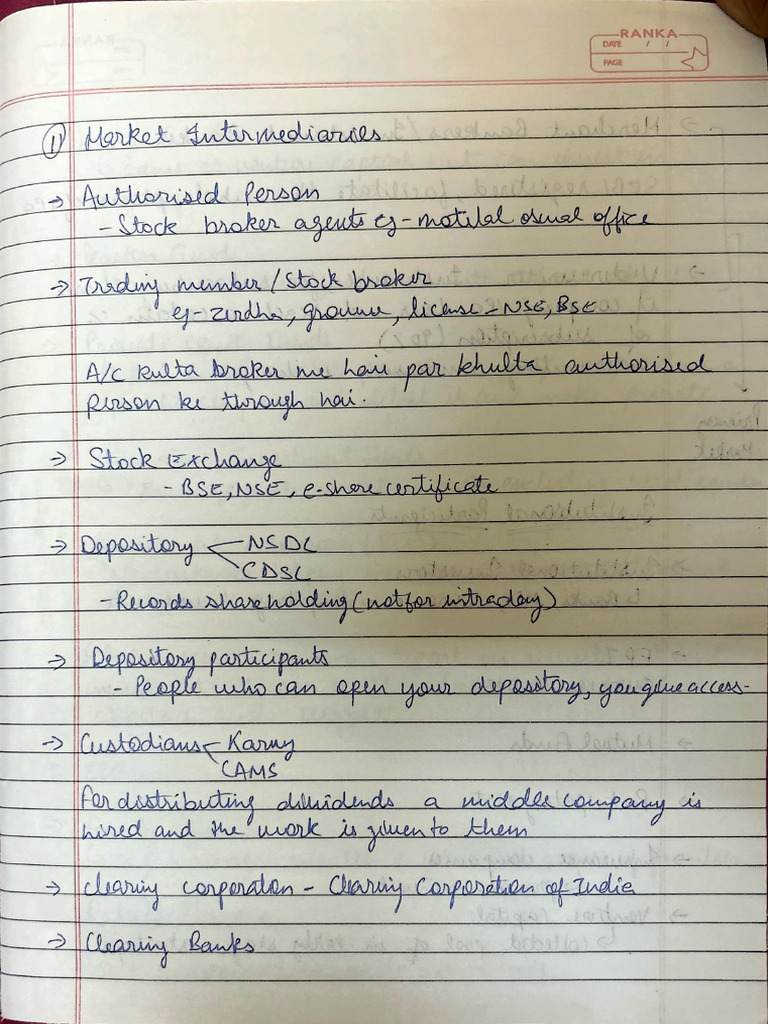 RANKA
DATE / /
PAGE
① Market Intermediaries
→ Authorised Person
- Stock broker agents eg - motilal oswal office
→ Trading member / Stock broker
eg - zerdha, groww, license - NSE, BSE
A/C kulta broker me hai par khulta authorised
person ke through hai.
→ Stock Exchange
- BSE, NSE, e-share certificate
→ Depository NSDL
CDSL
- Records shareholding (not for intraday)
→ Depository participants
- People who can open your depository, you give access-
→ Custodians Karvy
CAMS
For distributing dividends a middle company is
hired and the work is given to them
→ Clearing corporation - Clearing Corporation of India
→ Clearing Banks